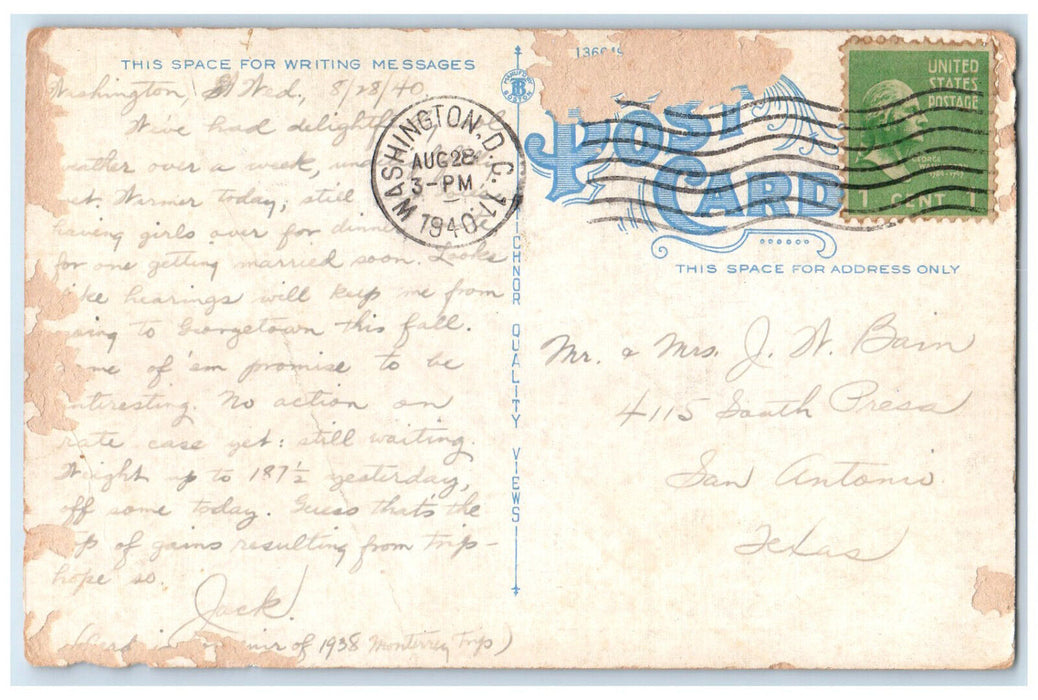 THIS SPACE FOR WRITING MESSAGES
Washington, Wed., 8/28/40.
We've had delightful
weather over a week,
yet. Warmer today, still
having girls over for dinner
for one getting married soon. Looks
like hearings will keep me from
going to Georgetown this fall.
Some of 'em promise to be
interesting. No action on
rate case yet: still waiting.
Weight up to 187½ yesterday,
off some today. Guess that's the
top of gains resulting from trip-
hope so.
Jack.
(Card souvenir of 1938 Monterrey Trip)
MANUF. BY
TB
BOSTON
TICHNOR QUALITY VIEWS
WASHINGTON, D.C. 17
AUG 28
3-PM
1940
POST
CARD
UNITED
STATES
POSTAGE
GEORGE
WASHINGTON
1 CENT 1
THIS SPACE FOR ADDRESS ONLY
Mr. & Mrs. J. W. Bain
4115 South Presa
San Antonio
Texas